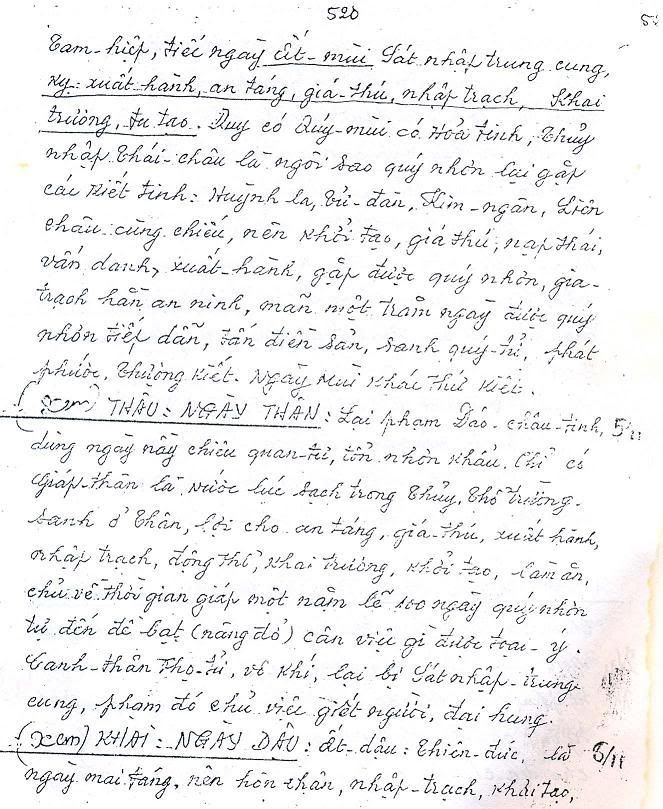 520
Tam-hiệp, tiếc ngaỹ Ất-mùi Sát nhập trung cung,
Kỵ: xuất hành, an táng, giá-thú, nhập trạch, Khai
trương, tu tạo. Duy có Quý-mùi có Hỏa tinh, Thủy
nhập Thái-châu là ngôi sao quý nhơn lại gặp
các Kiết tinh: Huỳnh la, Tử-đàn, Kim-ngân, Liên
châu cùng chiếu, nên khởi tạo, giá thú, nạp thái,
vấn danh, xuất-hành, gặp được quý nhơn, gia-
trạch hẳn an ninh, mãn một trăm ngaỹ được quý
nhơn tiếp dẫn, tấn điền sản, sanh quý-tử, phát
phước, Thượng Kiết. Ngaỹ Mùi Khác thứ Kiết.
(xem) THÂU: NGAỸ THÂN: Lại phạm Đáo-châu-tinh, 5/11
dùng ngaỹ nầy chiêu quan-tư, tổn nhơn khẩu. Chỉ có
Giáp-thân là nước lúc sạch trong Thủy, Thổ trường-
sanh ở Thân, lợi cho an táng, giá-thú, xuất hành,
nhập trạch, động thổ, Khai trương, Khởi tạo, làm ăn,
chủ về thời gian giáp một năm lẽ 100 ngaỹ quý nhơn
tự đến đề bạt (nâng đỏ) cân việc gì được toại-ý.
Canh-thân vô khí, lại bị Sát nhập-trung
cung, phạm đó chủ việc giết người, đại hung.
(xem) KHAI: NGAỸ DẬU: Ất-dậu: Thiên-đức, là 5/11
ngaỹ mai táng, nên hôn thân, nhập-trạch, khởi tạo,